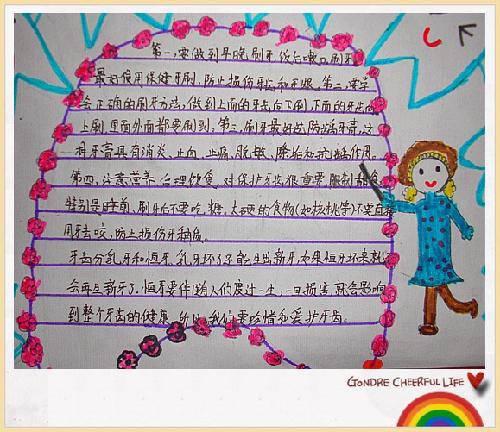 第一,要做到早晚刷牙,饭后漱口,刷牙
最好使用保健牙刷,防止损伤牙龈和牙根。第二,要学
会正确的刷牙方法,做到上面的牙齿向下刷,下面的牙齿向
上刷,里面外面都要刷到。第三,刷牙最好选防龋牙膏,这
种牙膏具有消炎、止血、止痛、脱敏、除垢和防龋作用。
第四,注意营养,合理饮食,对保护牙齿很重要,限制甜食
特别是睡前、刷牙后不要吃糖,太硬的食物(如核桃等)不要直接
用牙去咬,防止损伤牙釉质。
牙齿分乳牙和恒牙,乳牙坏了可能生出新牙,如果恒牙坏掉就
会再立新牙了。恒牙要伴随人们度过一生,一旦损害,就会影响
到整个牙齿的健康,所以我们要珍惜和爱护牙齿。
GONDRE CHEERFUL LIFE